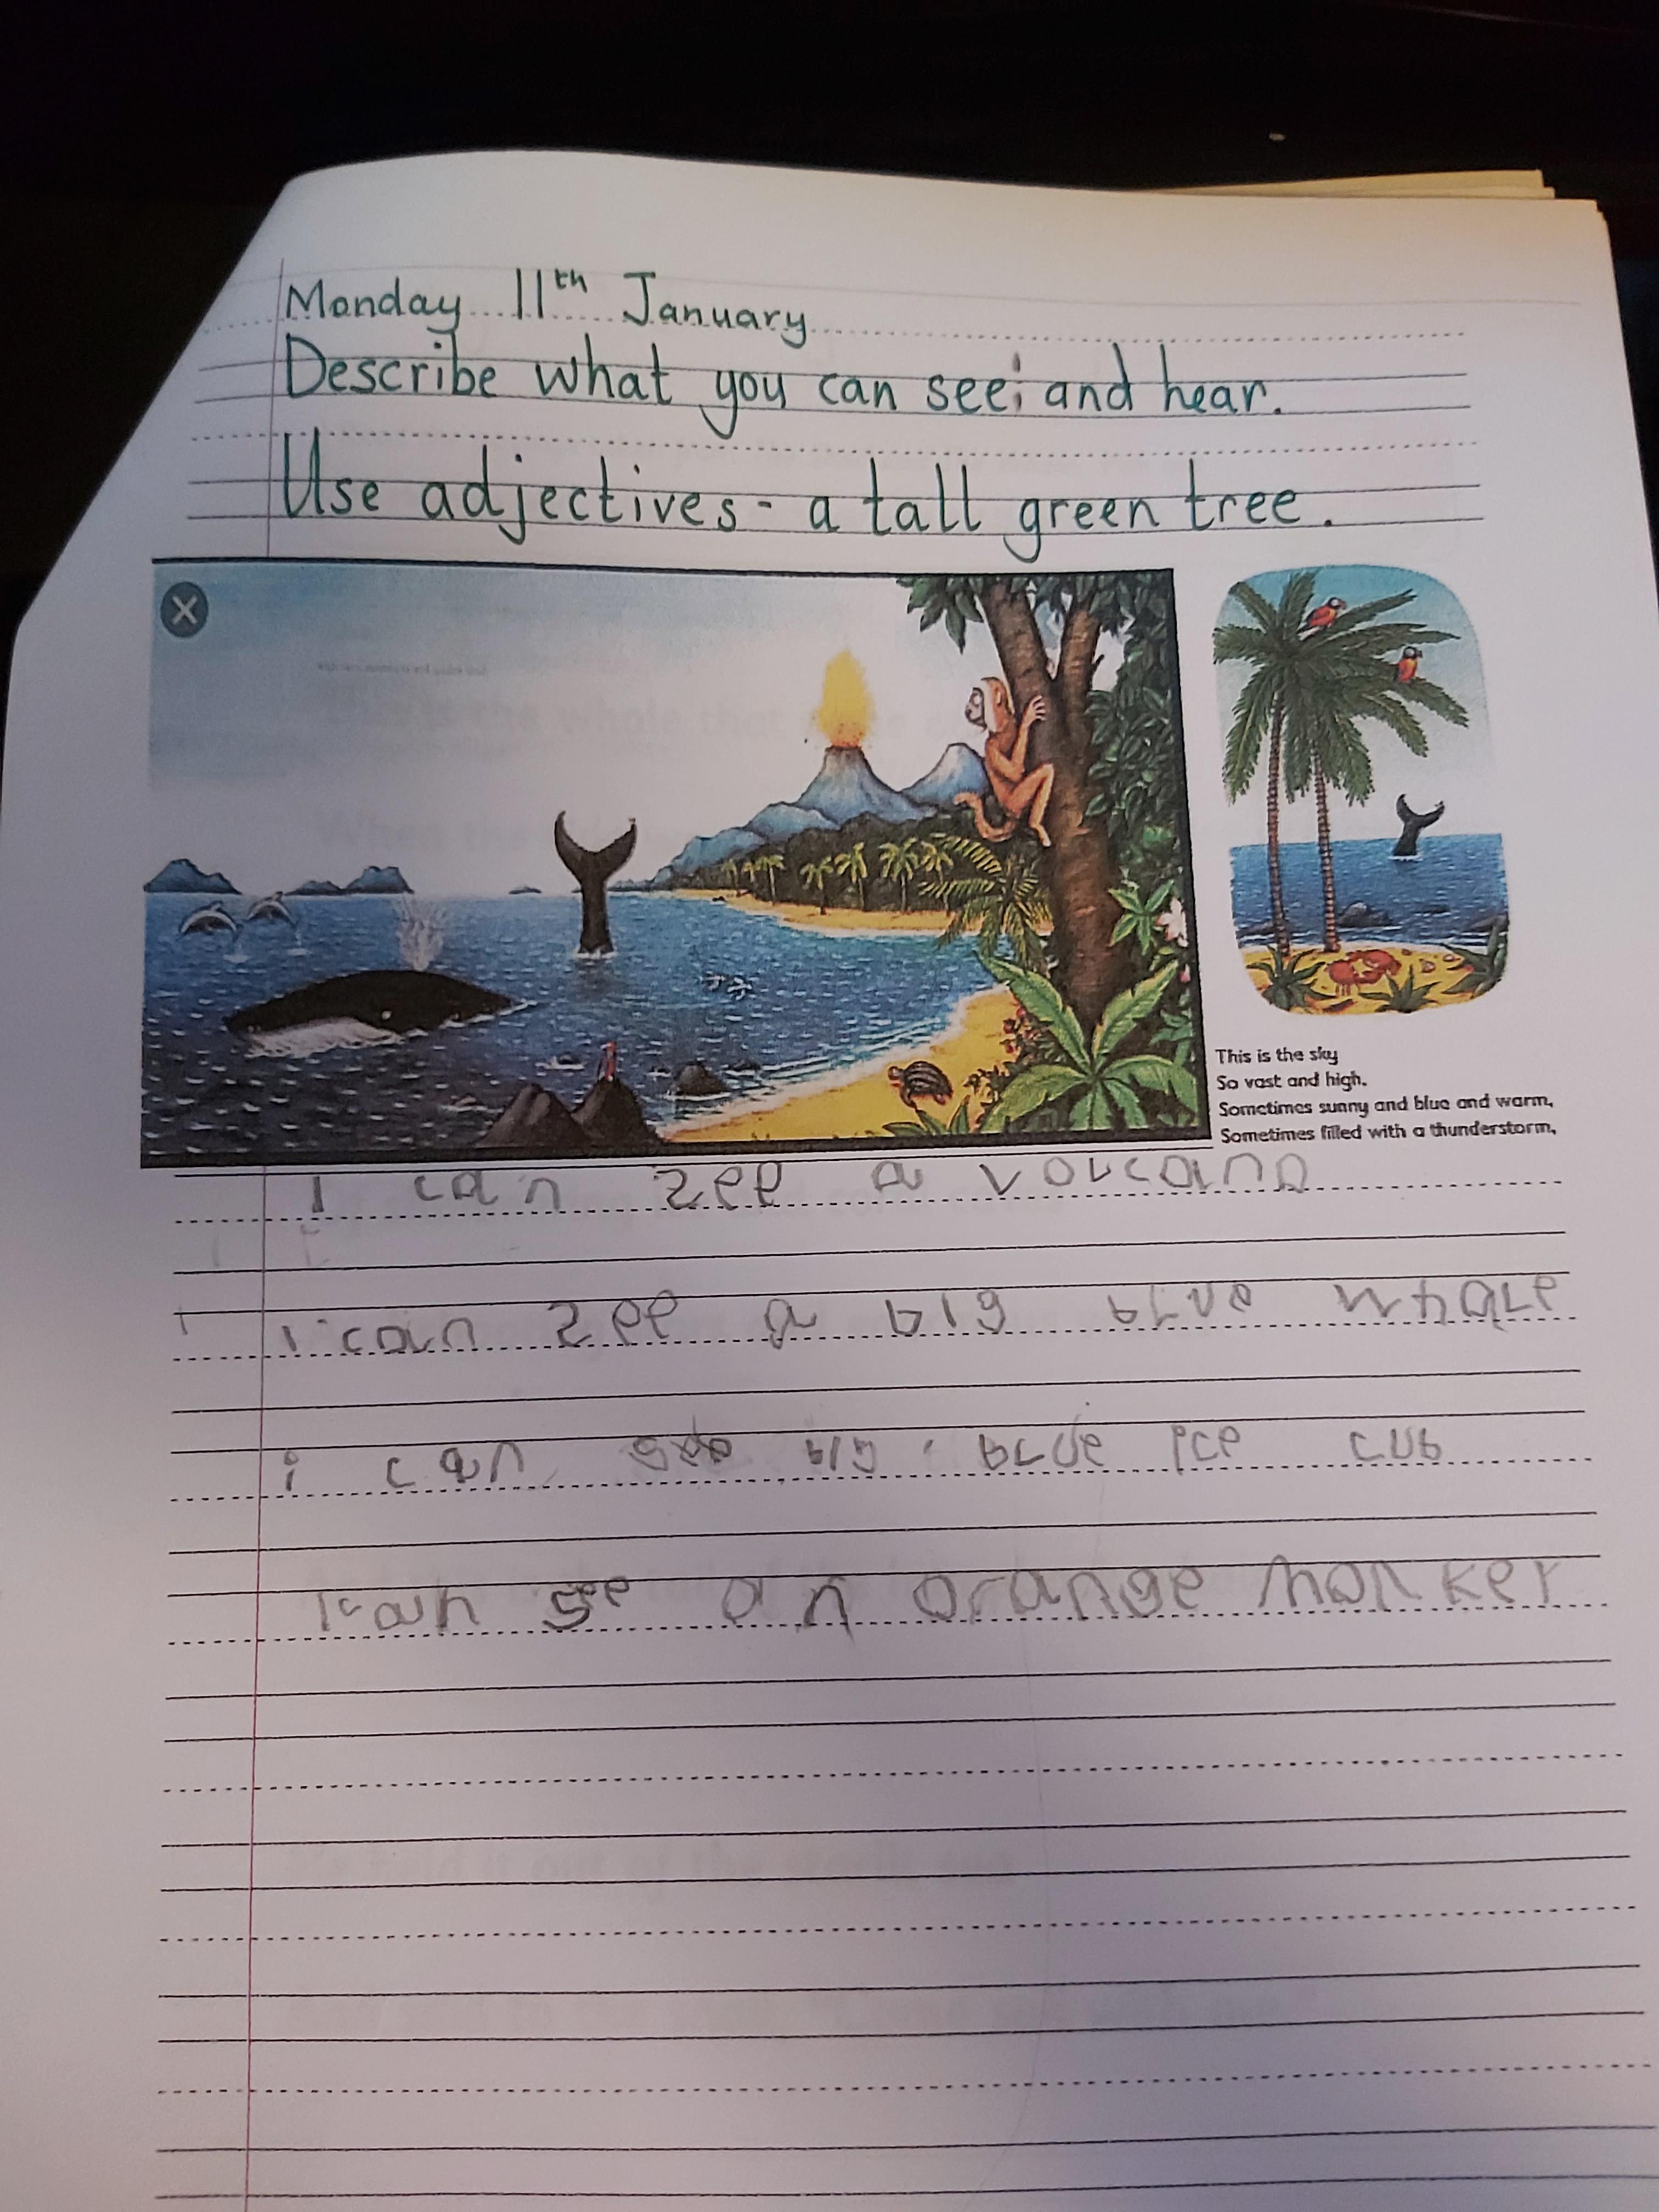 Monday 11th January
Describe what you can see; and hear.
Use adjectives - a tall green tree.
This is the sky
So vast and high.
Sometimes sunny and blue and warm,
Sometimes filled with a thunderstorm,
I can see a volcano
i can see a big blue whale
i can see big blue
I can see an orange monkey